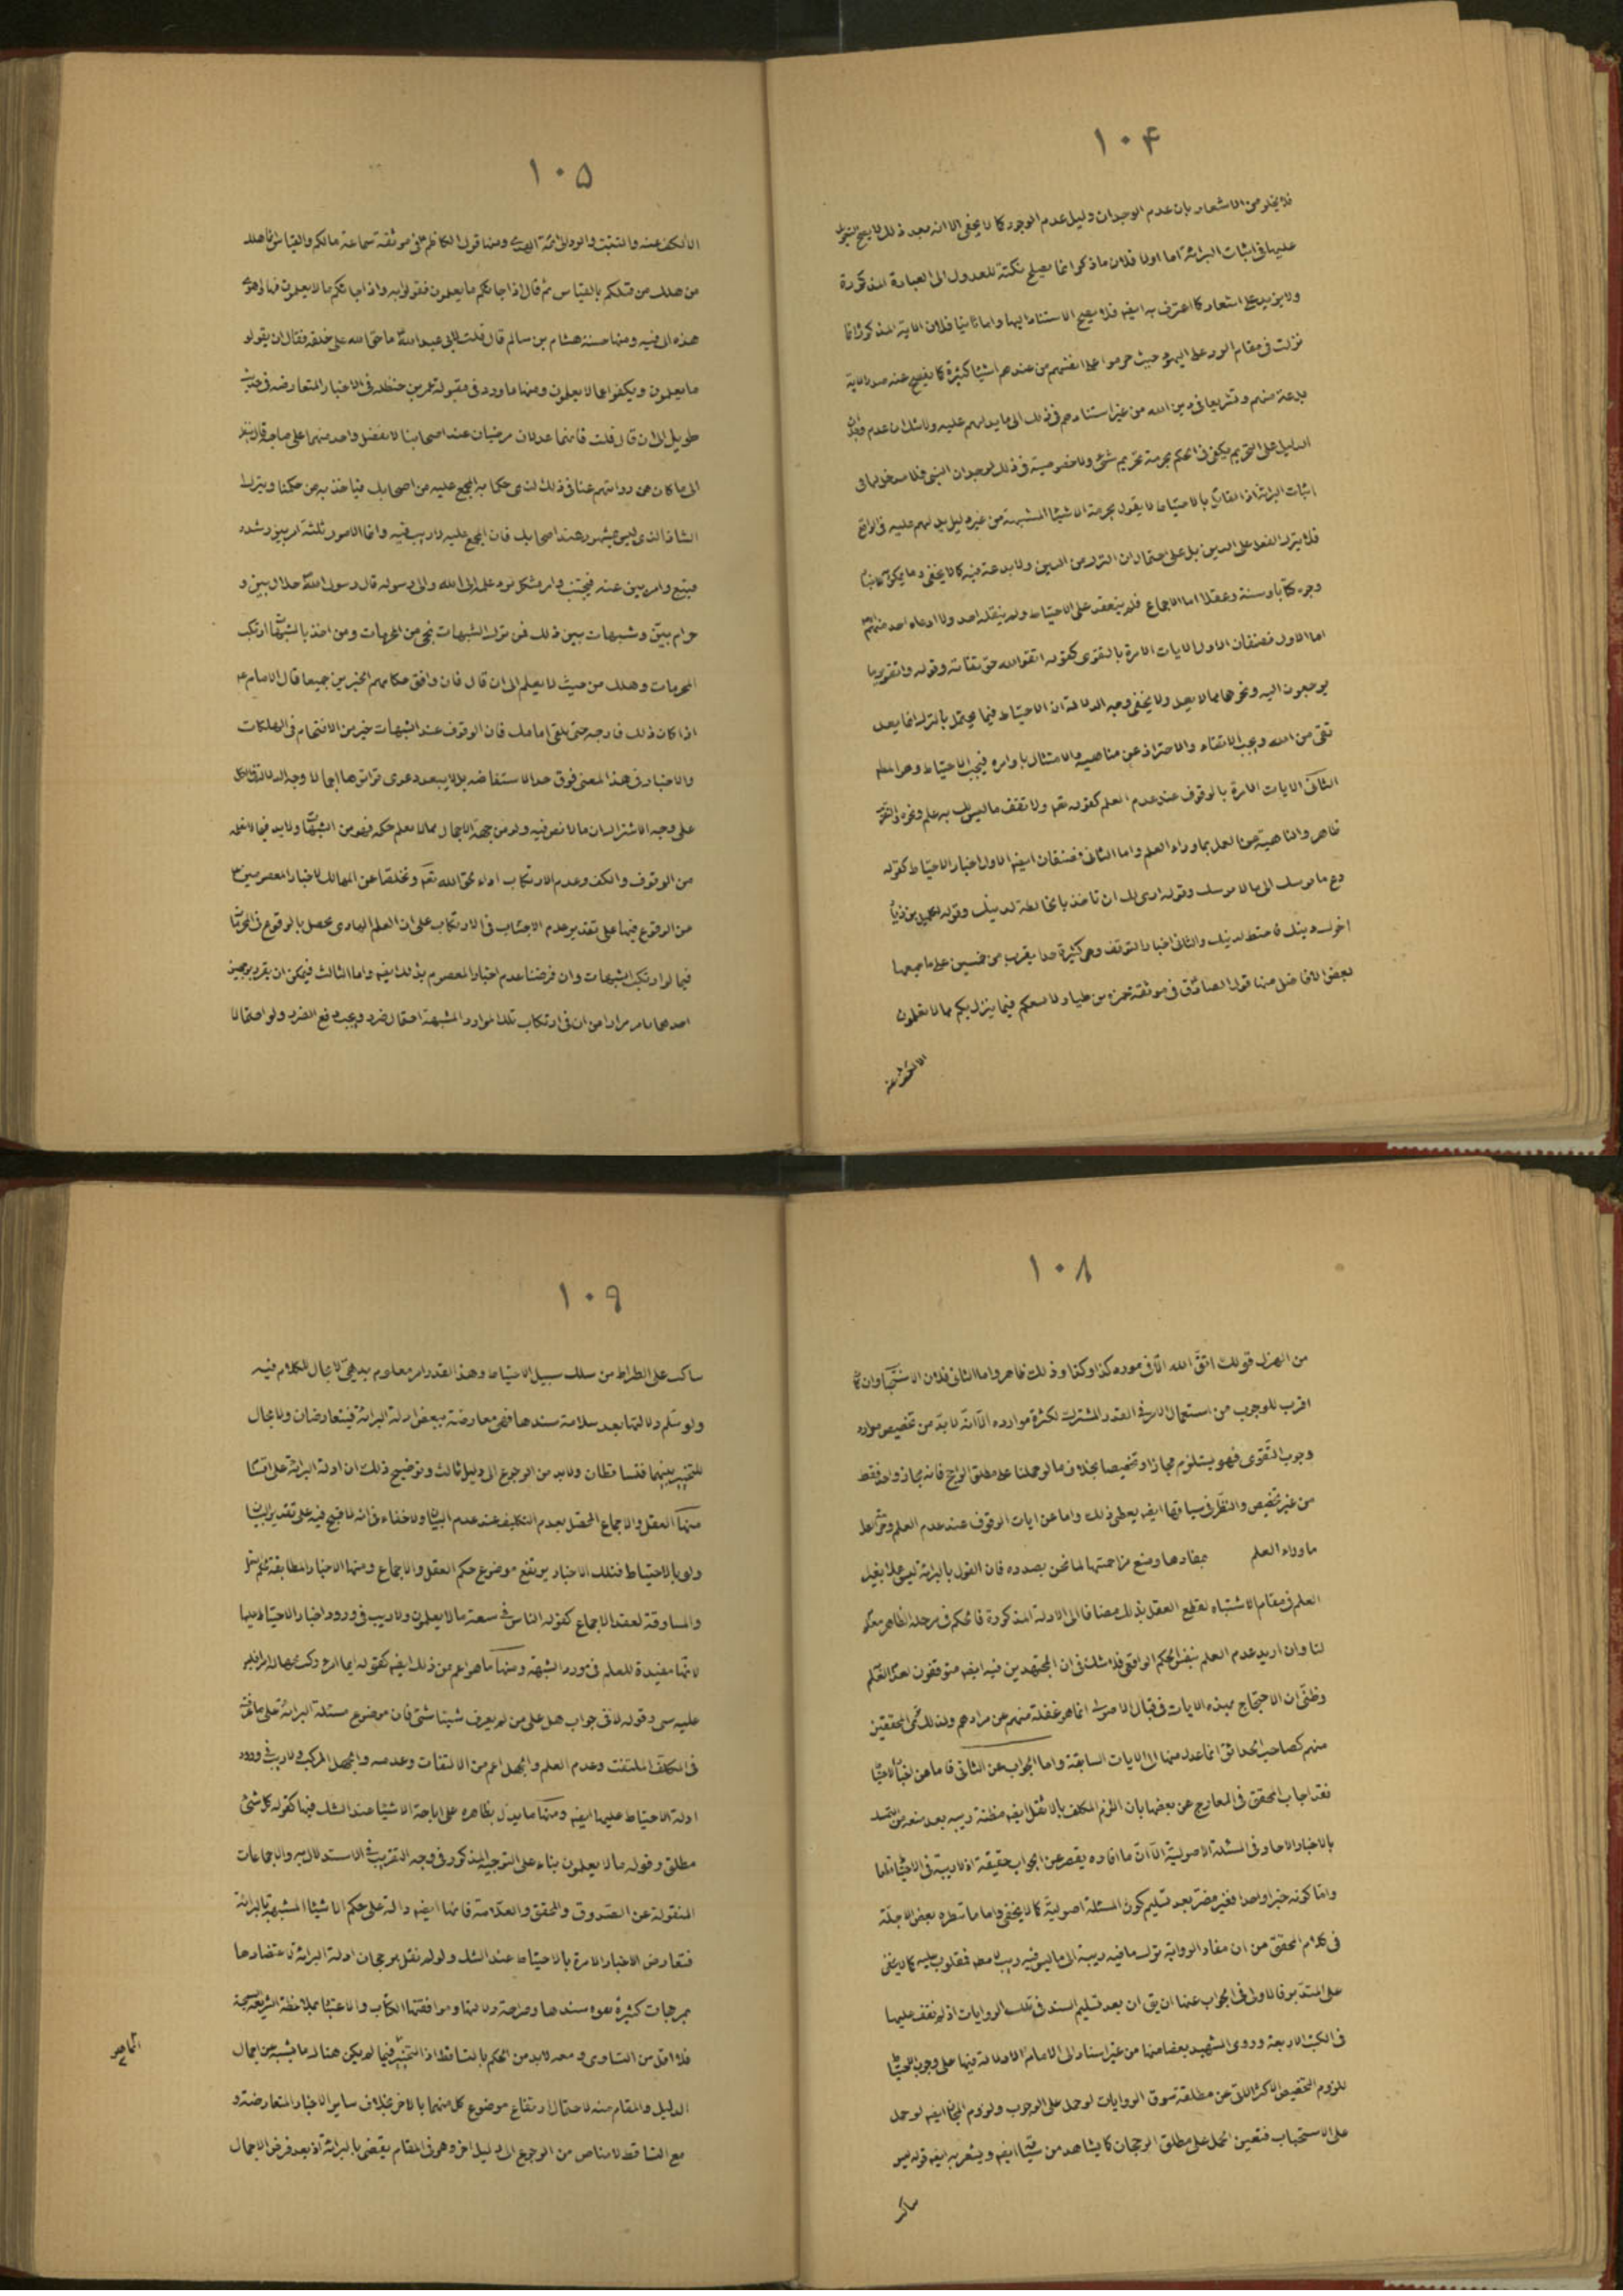 ۱۰۴
فلا يخلو من الاشعار بان عدم الوجدان دليل عدم الوجود كما لا يخفى الا انه بعد ذلك لا يصح
عليها فى اثبات البرائة اما اولا فلان ما ذكر انما يصلح نكتة للعدول الى العبارة المذكورة
ولا يزيد على اشعار كما اعترف به ايضا فلا يصح الاستناد اليها واما ثانيا فلان الاية المذكورة انما
نزلت فى مقام الرد على اليهود حيث حرموا على انفسهم من عندهم اشيئا كثيرة كما يفصح عنه صدر الاية
بدعة منهم وتشريعا فى دين الله من غير استنادهم فى ذلك الى ما يدلهم عليه ولا شك ان عدم
الدليل على التحريم يكفى فى الحكم بحرمة تحريم شئ ولا خصوصية فى ذلك لوجدان النبى فلا مدخل لها فى
اثبات البرائة اذ القائل بالاحتياط لا يقول بحرمة الاشيئا المشبهة من غير دليل يدلهم عليه فى الواقع
فلا يترك الفعل على الدين بل على احتمال ان الترك من الدين ولا بدعة فيه كما لا يخفى وما يمكن
وجوه كتابا وسنة وعقلا اما الاجماع فلم ينعقد على الاحتياط ولم ينقله احد ولا ادعاه احد منهم
اما الاول فصنفان الاول الايات الامرة بالتقوى كقوله اتقوا الله حق تقاته وقوله واتقوا يوما
يرجعون اليه ونحوهما مما لا يعد ولا يخفى وجه الدلالة ان الاحتياط فيما يحتمل بالترك انما يعد
تقى من الله ويجب الاتقاء والاحتراز عن مناهيه والامتثال باوامره فيجب الاحتياط وهو المطلوب
الثانى الايات الامرة بالوقوف عند عدم العلم كقوله تعم ولا تقف ما ليس لك به علم ونحوه
ظاهر والناهية عن العمل بما وراء العلم واما الثانى فصنفان ايضا الاول اخبار الاحتياط كقوله
دع ما يريبك الى ما لا يريبك وقوله ارى لك ان تاخذ بالحائطة لدينك وقوله لكميل بن زياد
اخوك دينك فاحتط لدينك والثانى اخبار التوقف وهى كثيرة جدا يقرب من خمسين على ما جمعها
بعض الافاضل منها قول الصادق فى موثقة حمزه بن طيار لا يسعكم فيما ينزل بكم مما لا تعلمون
الا الكف عنه
۱۰۵
الا الكف عنه والتثبت والرد الى ائمة الهدى ومنها قول الكاظم فى موثقة سماعة مالكم والقياس انما هلك
من هلك من قبلكم بالقياس ثم قال اذا جائكم ما تعلمون فقولوا به واذا جائكم ما لا تعلمون فها واهوى
هذه الى فيه ومنها حسنة هشام بن سالم قال قلت لابى عبد الله ما حق الله على خلقه فقال ان يقولو
ما يعلمون ويكفوا عما لا يعلمون ومنها ما ورد فى مقبولة عمر بن حنظله فى الاخبار المتعارضه فى حديث
طويل الى ان قال قلت فانهما عدلان مرضيان عند اصحابنا لا يفضل واحد منهما على صاحبه قال ينظر
الى ما كان من روايتهم عنا فى ذلك الذى حكما به المجمع عليه من اصحابك فياخذ به من حكمنا ويترك
الشاذ الذى ليس بمشهور عند اصحابك فان المجمع عليه لا ريب فيه وانما الامور ثلثة امر بين رشده
فيتبع وامر بين غيه فيجتنب وامر مشكل يرد علمه الى الله والى رسوله قال رسول الله حلال بين و
حرام بين وشبهات بين ذلك فمن ترك الشبهات نجى من المحرمات ومن اخذ بالشبهات ارتكب
المحرمات وهلك من حيث لا يعلم الى ان قال فان وافق حكامهم الخبرين جميعا قال الامام ع
اذا كان ذلك فارجه حتى تلقى امامك فان الوقوف عند الشبهات خير من الاقتحام فى الهلكات
والاخبار فى هذا المعنى فوق حد الاستفاضه بل لا يبعد دعوى تواترها اجمالا وجه الدلالة فى الكل
على وجه الاشتراك ان ما لا نص فيه ولو من جهة الاجمال مما لا يعلم حكمه فهو من الشبهات ولا بد فيما لا نعلمه
من الوقوف والكف وعدم الارتكاب اداء لحق الله تعم وتخلصا عن المهالك لاخبار المعصومين ع
من الوقوع فيها على تقدير عدم الاجتناب فى الارتكاب على ان العلم العادى يحصل بالوقوع فى المحرمات
فيما لو ارتكب الشبهات وان فرضنا عدم اخبار المعصوم بذلك ايضا واما الثالث فيمكن ان يقرر بوجهين
احدهما ما مر مرارا من ان فى ارتكاب تلك الموارد المشبهة احتمال ضرر ويجب دفع الضرر ولو احتمالا
۱۰۸
من الهزل قولك اتق الله الا فى مورد كذا وكذا وذلك ظاهر واما الثانى فلان الاستحباب وان كان
اقرب للوجوب من استعمال الامر فى القدر المشترك لكثرة موارده الا انه لا بد من تخصيص موارد
وجوب التقوى فهو يستلزم مجازا وتخصيصا بخلاف ما لو حملنا على مطلق الراجح فانه مجاز واحد فقط
من غير تخصيص والنظر فى سياقها ايضا يعطى ذلك واما عن ايات الوقوف عند عدم العلم
ما وراء العلم بمفادها ومنع مزاحمتها لما نحن بصدده فان القول بالبرائة ليس عملا بغير
العلم فى مقام الاشتباه لقطع العقل بذلك مضافا الى الادلة المذكورة فالحكم فى مرحلة الظاهر معلوم
لنا وان اريد عدم العلم بنفس الحكم الواقعى فلا شك فى ان المجتهدين فيه ايضا متوقفون لعدم العلم
وظنى ان الاحتجاج بهذه الايات فى قبال الاصولى انما هو غفلة منهم عن مرادهم ولذلك ترى المحققين
منهم كصاحب الحدائق انما عدل منها الى الايات السابقة واما الجواب عن الثانى فاما عن اخبار الاحتياط
فقد اجاب المحقق فى المعارج عن بعضها بان الزام المكلف بالاثقل ايضا مظنة ريبه بعد منعه من التمسك
بالاخبار الاحاد فى المسئلة الاصولية الا ان ما افاده يقصر عن الجواب حقيقة اذ لا ريبة فى الاحتياط
واما كونه خبرا واحدا فغير مضر بعد تسليم كون المسئلة اصولية كما لا يخفى واما ما سطره بعض الاجلة
فى كلام المحقق من ان مفاد الرواية ترك ما فيه ريبة الى ما ليس فيه ريب فمقلوب عليه كما لا يخفى
على المتدبر فالاولى فى الجواب عنها ان يق ان بعد تسليم السند فى تلك الروايات اذ لم نقف عليها
فى الكتب الاربعة وروى الشهيد بعضا منها من غير اسناد الى الامام لا دلالة فيها على وجوب الاحتياط
للزوم التخصيص الاكثر اللاتى عن مطلقة سوق الروايات لو حمل على الوجوب ولزوم المجاز ايضا لو حمل
على الاستحباب فتعين الحمل على مطلق الرجحان كما يشاهد من سياقها ايضا ويشعر به ايضا قوله ليس
ساكب
۱۰۹
ساكب على الطراط من سلك سبيل الاحتياط وهذا القدر امر معلوم بديهى لا مجال للكلام فيه
ولو سلم دلالتها بعد سلامة سندها فهى معارضة ببعض ادلة البرائة فيتعارضان ولا مجال
للتخيير بينهما فتساقطان ولا بد من الرجوع الى دليل ثالث وتوضيح ذلك ان ادلة البرائة على اقسام
منها العقل والاجماع المحصل بعدم التكليف عند عدم البيان ولا خفاء فى انه لا قبح فيه على تقدير البيان
ولو بالاحتياط فتلك الاخبار يرتفع موضوع حكم العقل والاجماع ومنها الاخبار المطابقة لحكم العقل
والمساوقة لعقد الاجماع كقوله الناس فى سعة ما لا يعلمون ولا ريب فى ورود اخبار الاحتياط عليها
لانها مفيدة للعلم فى مورد الشبهة ومنها ما هو اعم من ذلك ايضا كقوله ايما امرء ركب بجهالة امرا فليس
عليه شئ وقوله لا فى جواب هل على من لم يعرف شيئا شئ فان موضوع مسئلة البرائة على ما عرفت
فى المكلف الملتفت وعدم العلم والجهل اعم من الالتفات وعدمه والجهل المركب ولا ريب فى ورود
ادلة الاحتياط عليها ايضا ومنها ما يدل بظاهره على اباحة الاشيئا عند الشك فيها كقوله كل شئ
مطلق وقوله ما لا يعلمون بناء على التوجيه المذكور فى وجه التقريب فى الاستدلال به والاجماعات
المنقولة عن الصدوق والمحقق والعلامة فانها ايضا دالة على حكم الاشيئا المشتبهة بالبرائة
فتعارض الاخبار الامرة بالاحتياط عند الشك ولو لم نقل برجحان ادلة البرائة لاعتضادها
بمرجحات كثيرة بقوه سندها وصراحة دلالتها وموافقتها الكتاب والاعتبار بملاحظة الشريعة السمحة
فلا اقل من التساوى ومعه لا بد من الحكم بالتساقط اذ التخيير فيما لم يكن هناك ما يشبه عن اجمال
الدليل والمقام منه لاحتمال ارتفاع موضوع كل منهما بالاخر بخلاف ساير الاخبار المتعارضة و
مع التساقط لا مناص من الرجوع الى دليل اخر وهو فى المقام يقضى بالبرائة اذ بعد فرض الاجمال